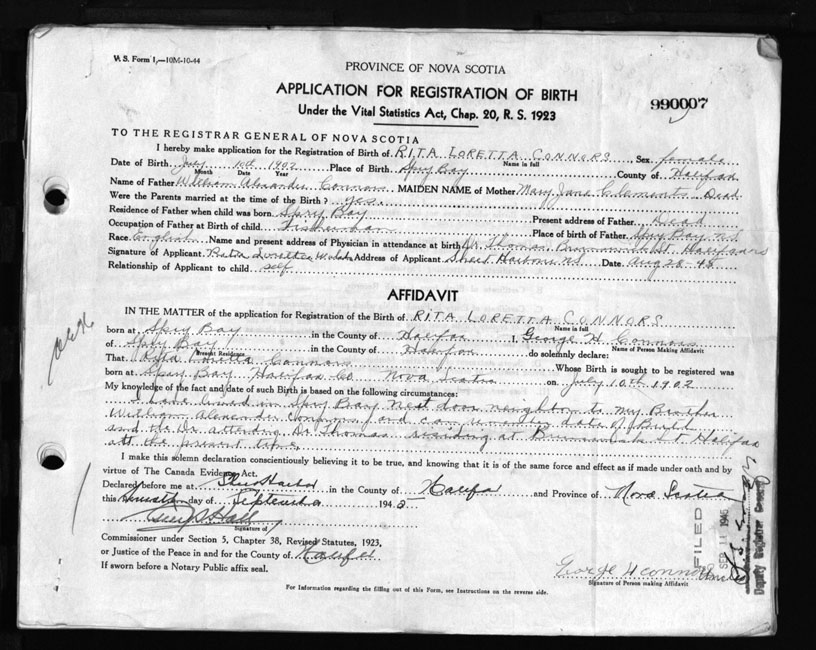 V. S. Form 1,—10M-10-44
PROVINCE OF NOVA SCOTIA
APPLICATION FOR REGISTRATION OF BIRTH
990007
Under the Vital Statistics Act, Chap. 20, R. S. 1923
TO THE REGISTRAR GENERAL OF NOVA SCOTIA
I hereby make application for the Registration of Birth of RITA LORETTA CONNORS, Sex female
Name in full
Date of Birth July 10th 1902 Place of Birth Spry Bay County of Halifax
Month Date Year
Name of Father William Alexander Connors MAIDEN NAME of Mother Mary Jane Clements Dead
Were the Parents married at the time of Birth? yes.
Residence of Father when child was born Spry Bay Present address of Father Dead
Occupation of Father at Birth of child Fisherman Place of birth of Father Spry Bay N.S
Race English Name and present address of Physician in attendance at birth Dr Thomas St. Halifax
Signature of Applicant Rita Loretta Walsh Address of Applicant Sheet Harbour N.S Date Aug 28-45
Relationship of Applicant to child self
AFFIDAVIT
IN THE MATTER of the application for Registration of the Birth of RITA LORETTA CONNORS
Name in full
born at Spry Bay in the County of Halifax I, George H Connors
Name of Person Making Affidavit
of Spry Bay in the County of Halifax do solemnly declare:
Present Residence
That Rita Loretta Connors Whose Birth is sought to be registered was
born at Spry Bay Halifax Co Nova Scotia on July 10th 1902
My knowledge of the fact and date of such Birth is based on the following circumstances:
I have lived in Spry Bay next door neighbor to my Brother
William Alexander Connors and can date of Birth
and the Dr attending Dr Thomas residing at St Halifax
at the present time.
I make this solemn declaration conscientiously believing it to be true, and knowing that it is of the same force and effect as if made under oath and by
virtue of The Canada Evidence Act.
Declared before me at in the County of Halifax and Province of Nova Scotia
this day of September 1945
Signature of
Commissioner under Section 5, Chapter 38, Revised Statutes, 1923,
or Justice of the Peace in and for the County of Halifax
If sworn before a Notary Public affix seal.
George H Connors
Signature of Person making Affidavit
For Information regarding the filling out of this Form, see Instructions on the reverse side.
FILED
SEP 11 1945
Deputy Registrar General